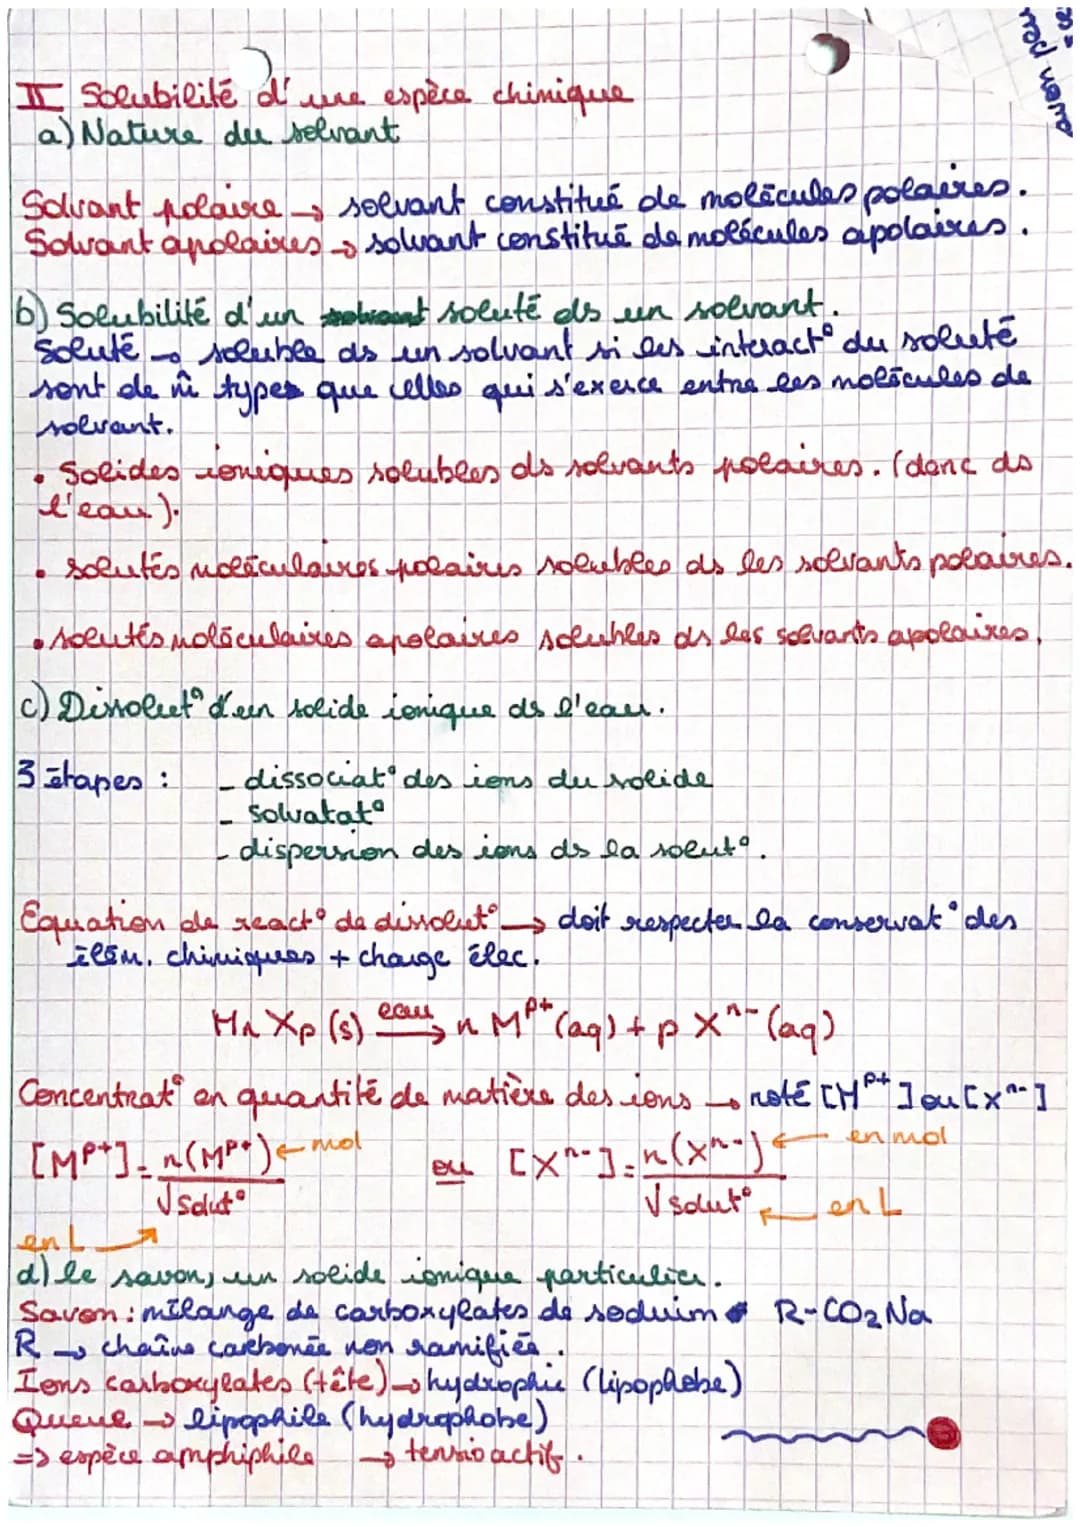 II Solubilité d'une espèce chimique
a) Nature du solvant
Solvant polaire → solvant constitué de molécules polaires.
Solvant apolaires → solvant constitué de molécules apolaires.
b) Solubilité d'un soluté ds un solvant.
Soluté → soluble ds un solvant si les interact° du soluté
sont de m̂ types que celles qui s'exerce entre les molécules de
solvant.
• Solides ioniques solubles ds solvants polaires. (donc ds
l'eau).
• solutés moléculaires polaires solubles ds les solvants polaires.
• solutés moléculaires apolaires solubles ds les solvants apolaires.
c) Dissolut° d'un solide ionique ds l'eau.
3 étapes : - dissociat° des ions du solide
- Solvatat°
- dispersion des ions ds la solut°.
Equation de react° de dissolut° → doit respecter la conservat° des
élém. chimiques + charge élec.
Mn Xp (s) eau→ n M^p+ (aq) + p X^n- (aq)
Concentrat° en quantité de matière des ions → noté [M^p+] ou [X^n-]
[M^p+] = n(M^p+) ← mol ou [X^n-] = n(X^n-) ← en mol
V solut° V solut° ← en L
en L →
d) le savon, un solide ionique particulier.
Savon : mélange de carboxylates de soduim R-CO2Na
R → chaîne carbonée non ramifiée.
Ions carboxylates (tête) → hydrophie (lipophobe)
Queue → lipophile (hydrophobe)
=> espèce amphiphile → tensioactif.